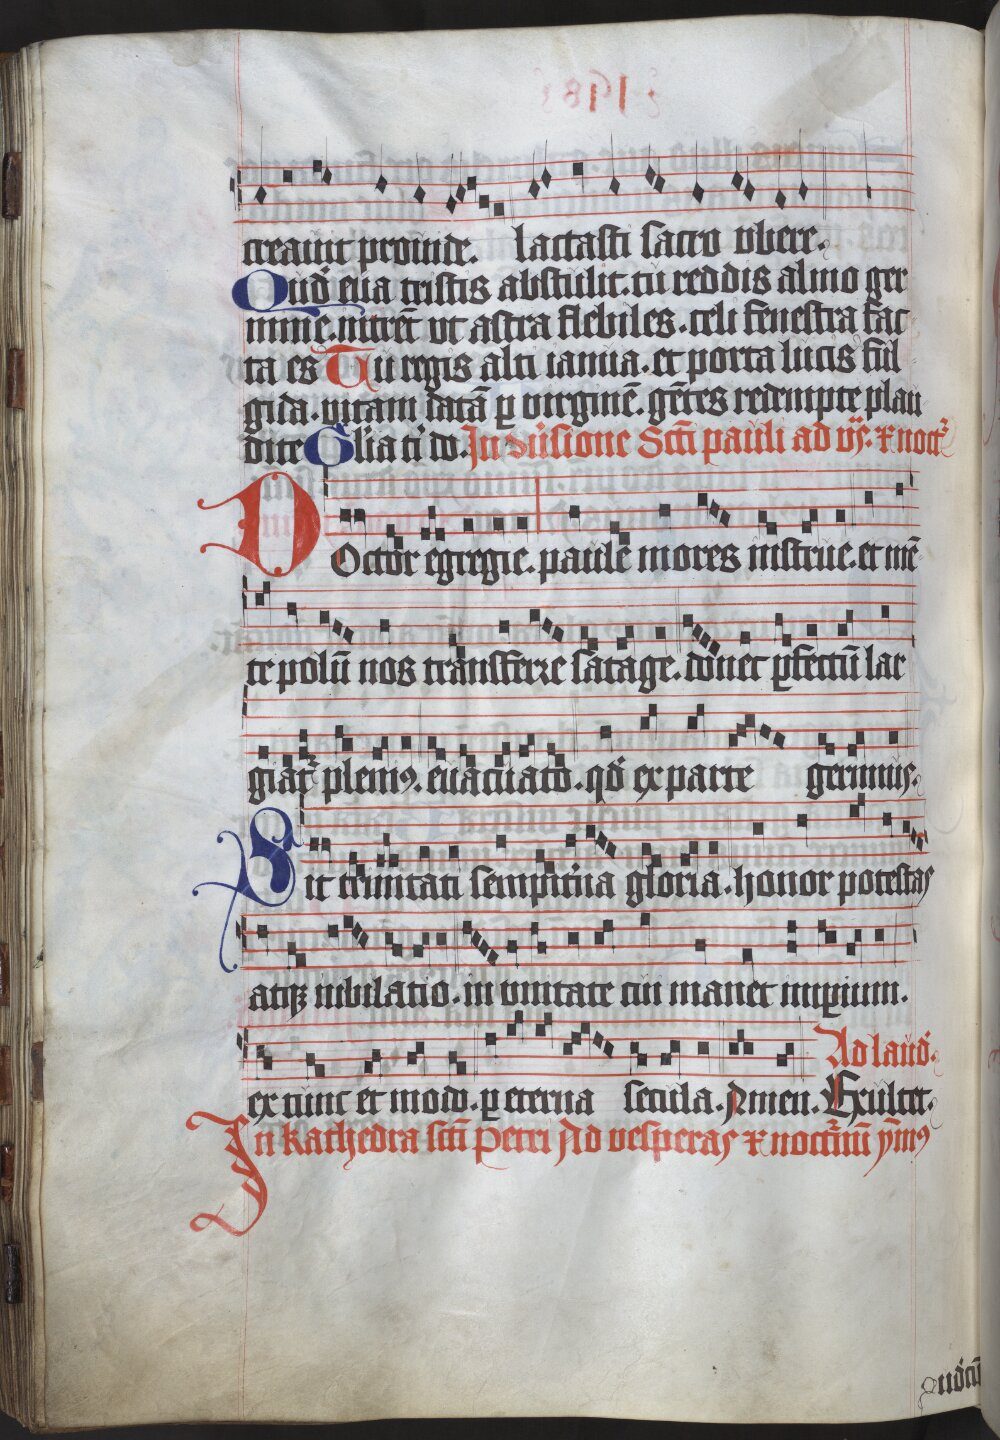 creauit prouide. lactasti sacro vbere.
Quod eua tristis abstulit. tu reddis almo ger
mine. intrēt vt astra flebiles. celi fenestra fac
ta es Tu regis alti ianua. et porta lucis ful
gida. vitam datā ꝑ virginē. gētes redempte plau
dite Glia ti do. In
Scti pauli ad vs. et noct
Doctor egregie. paule mores instrue. et mē
te polū nos transferre satage. donec ꝑfectū lar
giat plenius. euacuato. qd ex parte gerimus.
Sit trinitati sempitna gloria. honor potestas
atqꝫ iubilatio. in vnitate cui manet imꝑium.
Ad laud.
ex tunc et modo. ꝑ eterna secula. Amen. Exultet.
In kathedra scti Petri Ad vesperas et nocturnū ymus